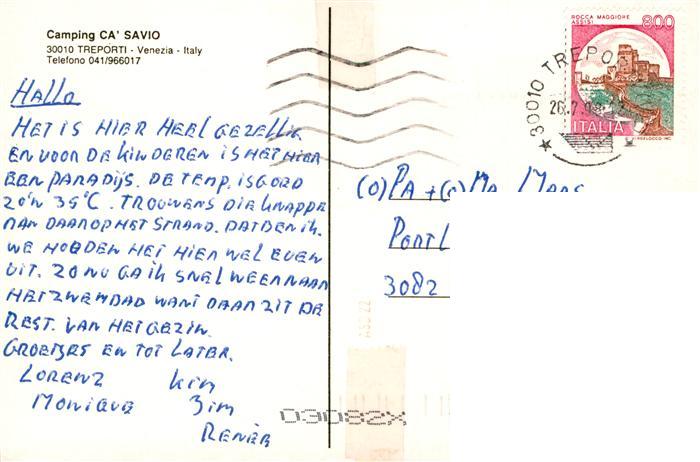 Camping CA' SAVIO
30010 TREPORTI - Venezia - Italy
Telefono 041/966017
HALLO
HET IS HIER HEEL GEZELLIG
EN VOOR DE KINDEREN IS HET HIER
EEN PARADIJS. DE TEMP. IS GOED
ZO'N 35°C. TROUWENS DIE KNAPPE
MAN DAAR OP HET STRAND. DAT BEN IK.
WE HOUDEN HET HIER WEL EVEN
UIT. ZO NU GA IK SNEL WEER NAAR
HET ZWEMBAD WANT DAAR ZIT DE
REST. VAN HET GEZIN.
GROETJES EN TOT LATER.
LORENZ Kim
MONIQUE Jim
RENÉE
ROCCA MAGGIORE
ASSISI
800
ITALIA
30010 TREPO
(O)PA + (O)MA
PORTL
3082
03082X